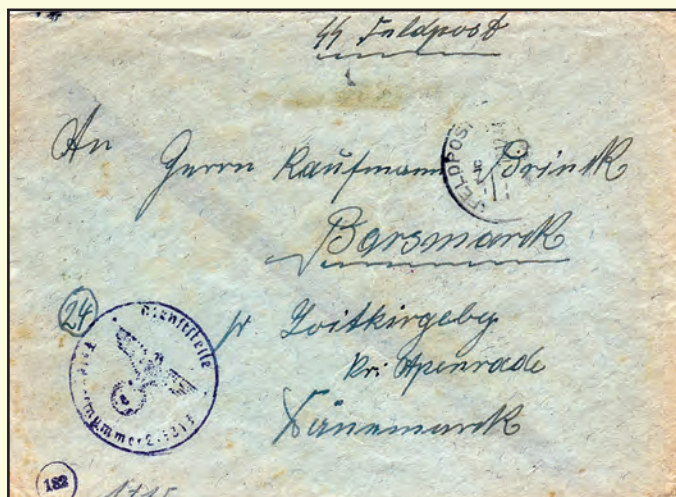 SS Feldpost
An
Herrn Kaufmann Brink
FELDPOST
Barsmarck
24
Dienststelle
pr Loitkirgeby
Kr: Apenrade
Dänemarck
182